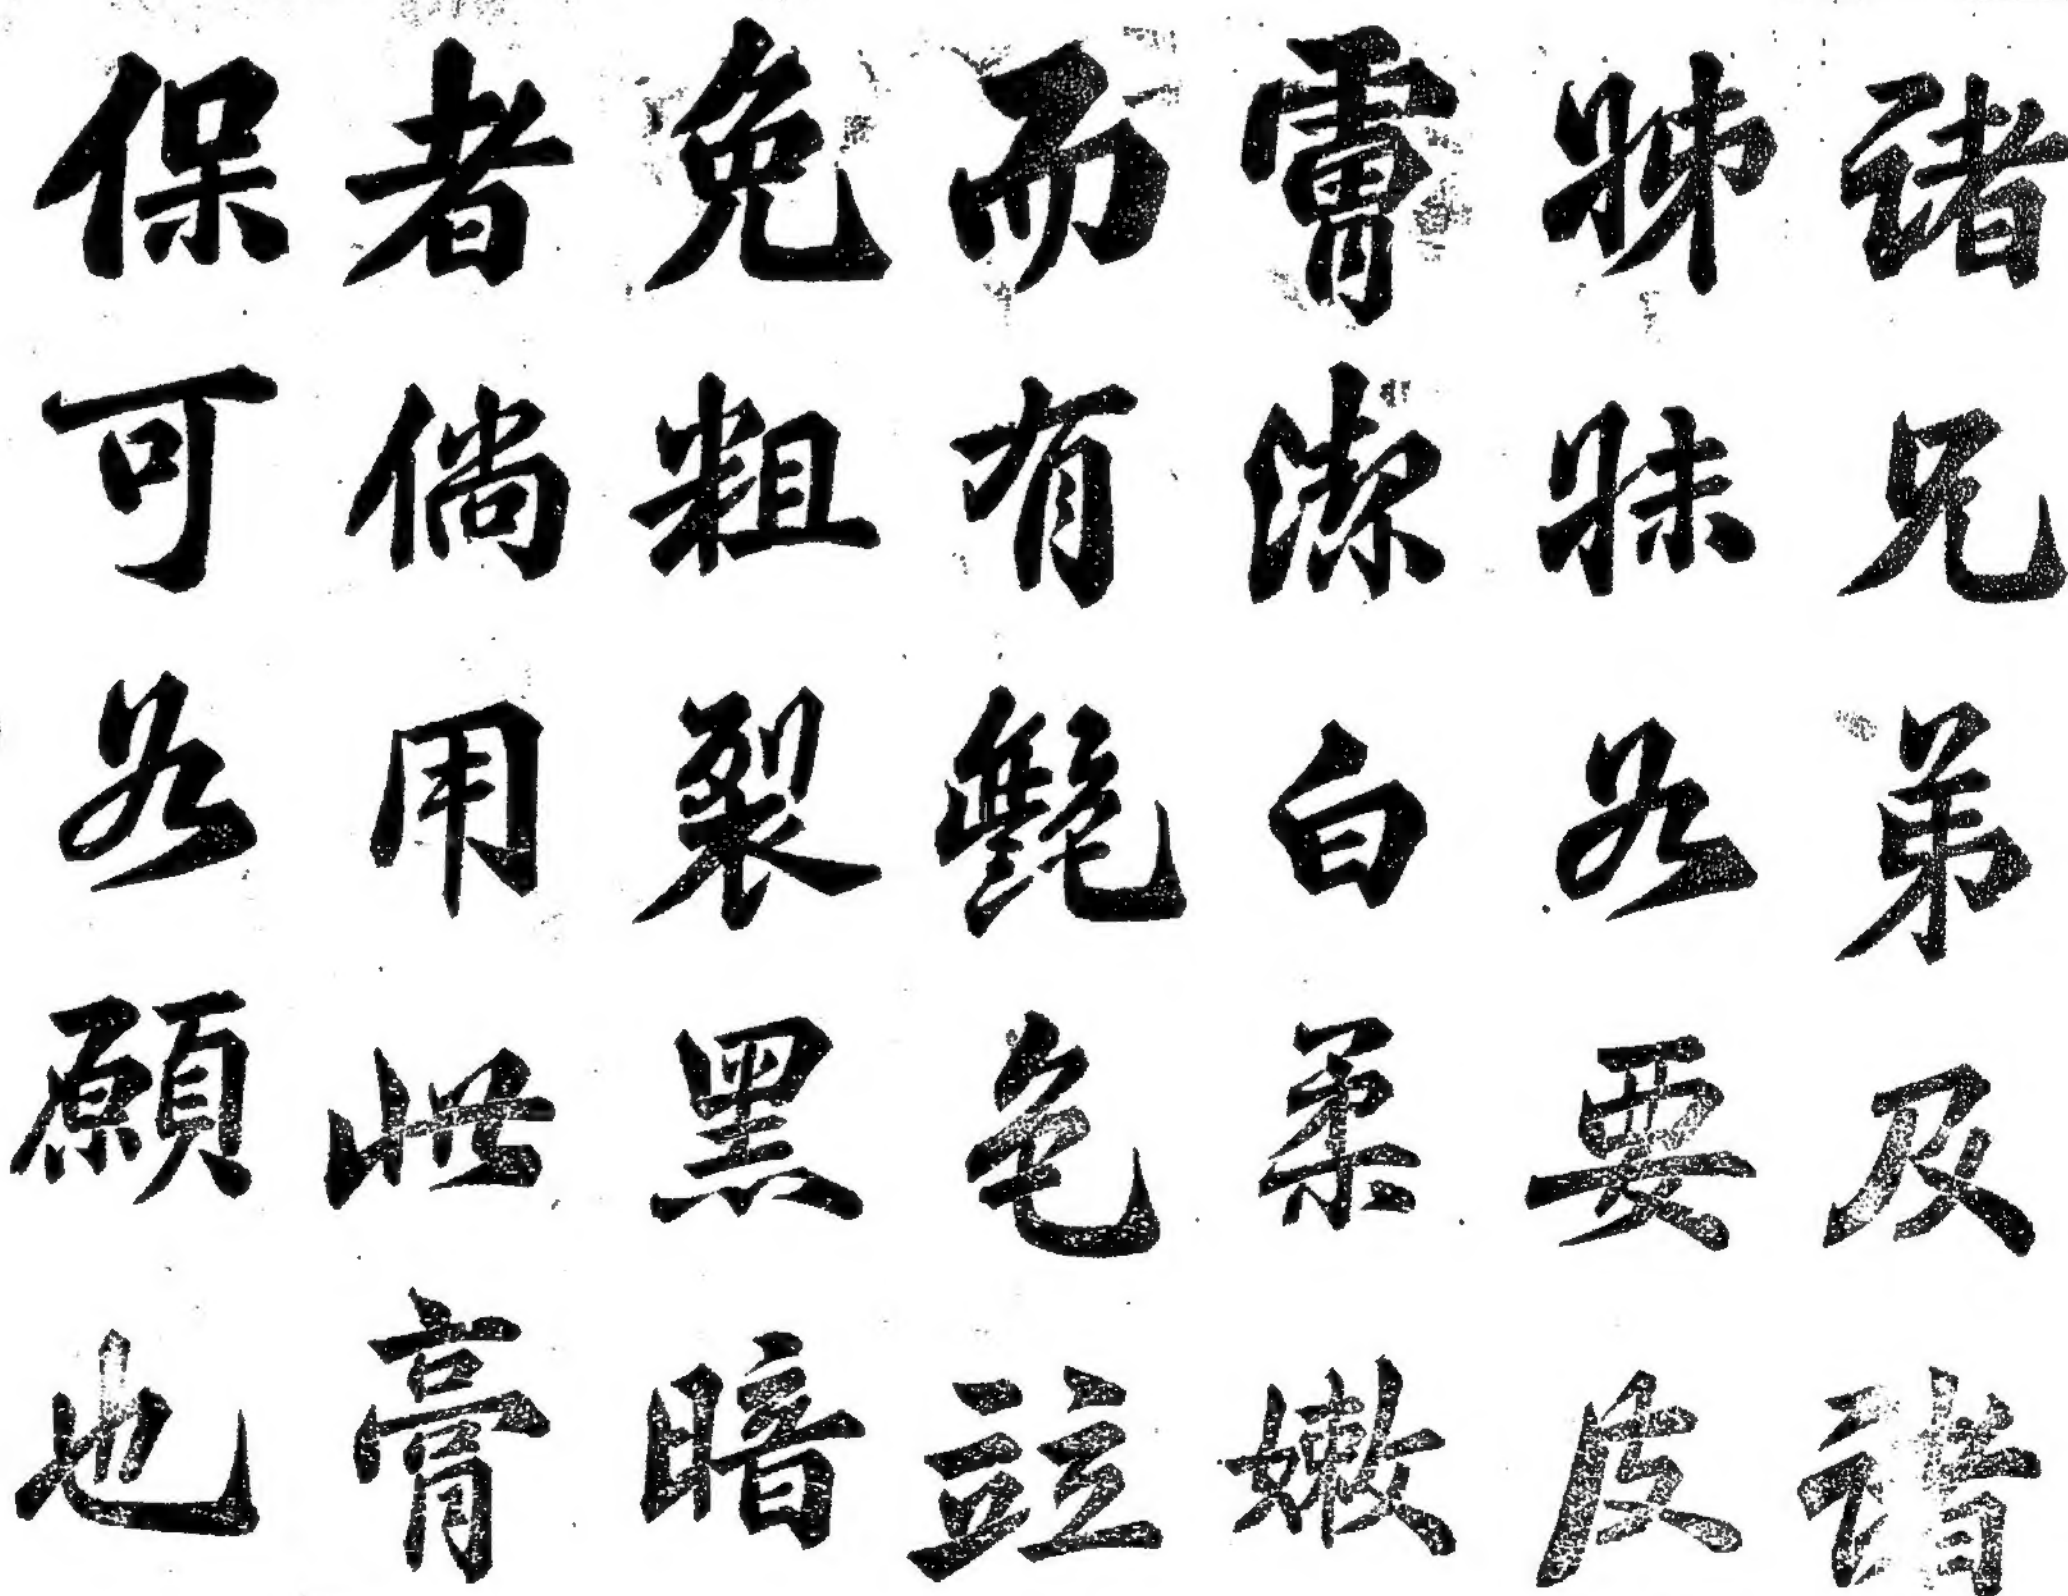 諸兄弟及諸
姊妹如要皮
膚潔白柔嫩
而有艷色並
免粗裂黑暗
者倘用此膏
保可如願也